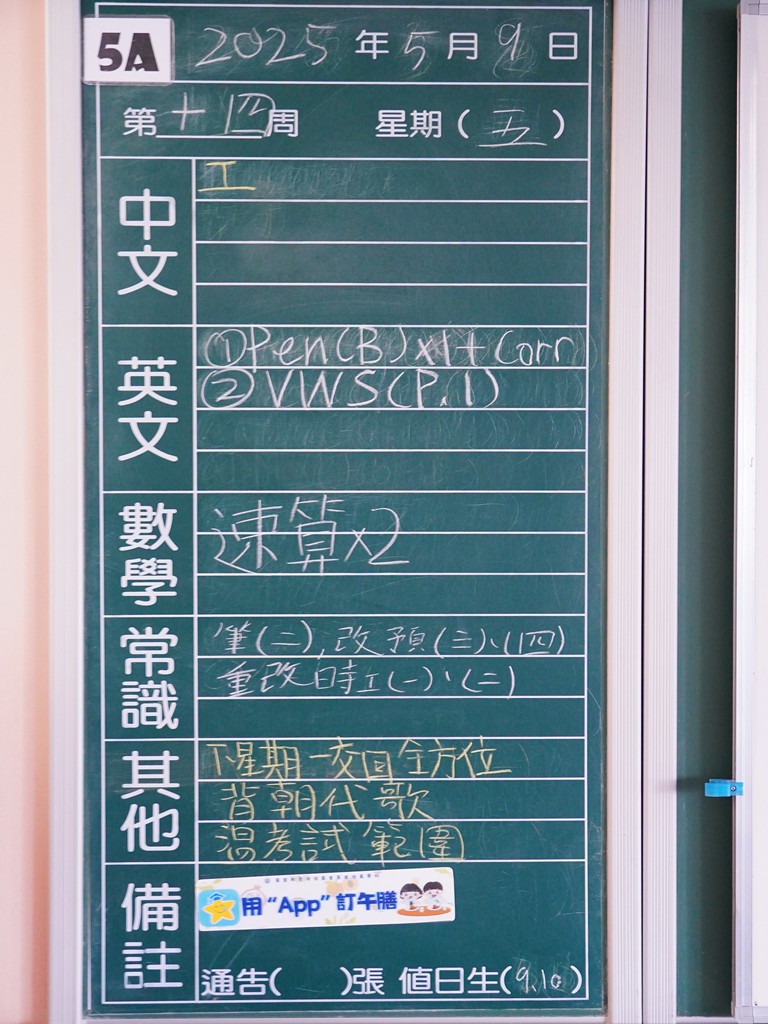 5A
2025年5月9日
第十四周 星期(五)
中文
工
英文
①Pen(B)x1+Corr
②VWS(P.1)
數學
速算x2
常識
筆(二),改預(三)、(四)
重改時工(一)、(二)
其他
下星期一交回全方位
背朝代歌
溫考試範圍
備註
用“App”訂午膳
通告( )張 值日生(9,10)